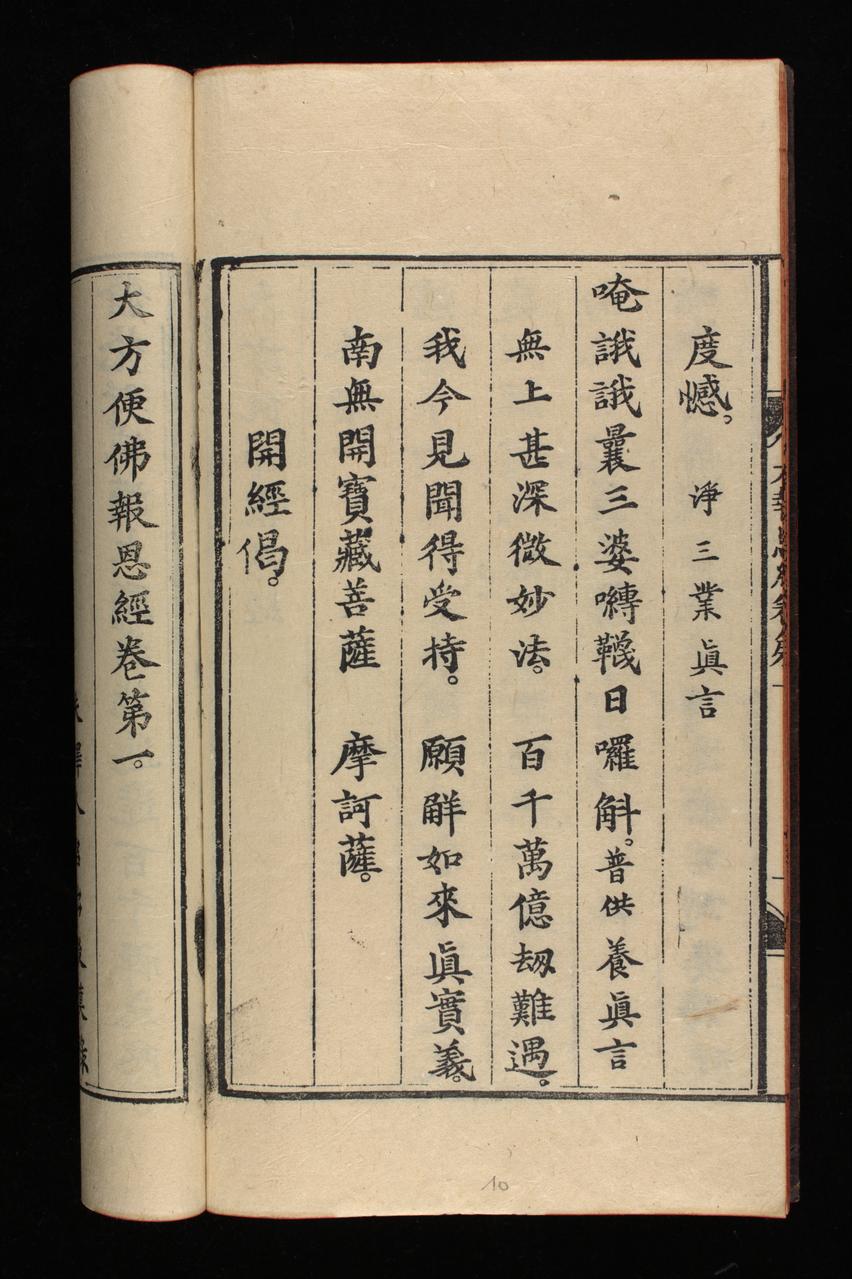 度憾。 淨三業眞言
唵誐誐曩三婆嚩韈日囉斛。普供養眞言
無上甚深微妙法。 百千萬億刼難遇。
我今見聞得受持。 願觧如來眞實義。
南無開寶藏菩薩 摩訶薩。
開經偈。
大方便佛報恩經卷第一。
10